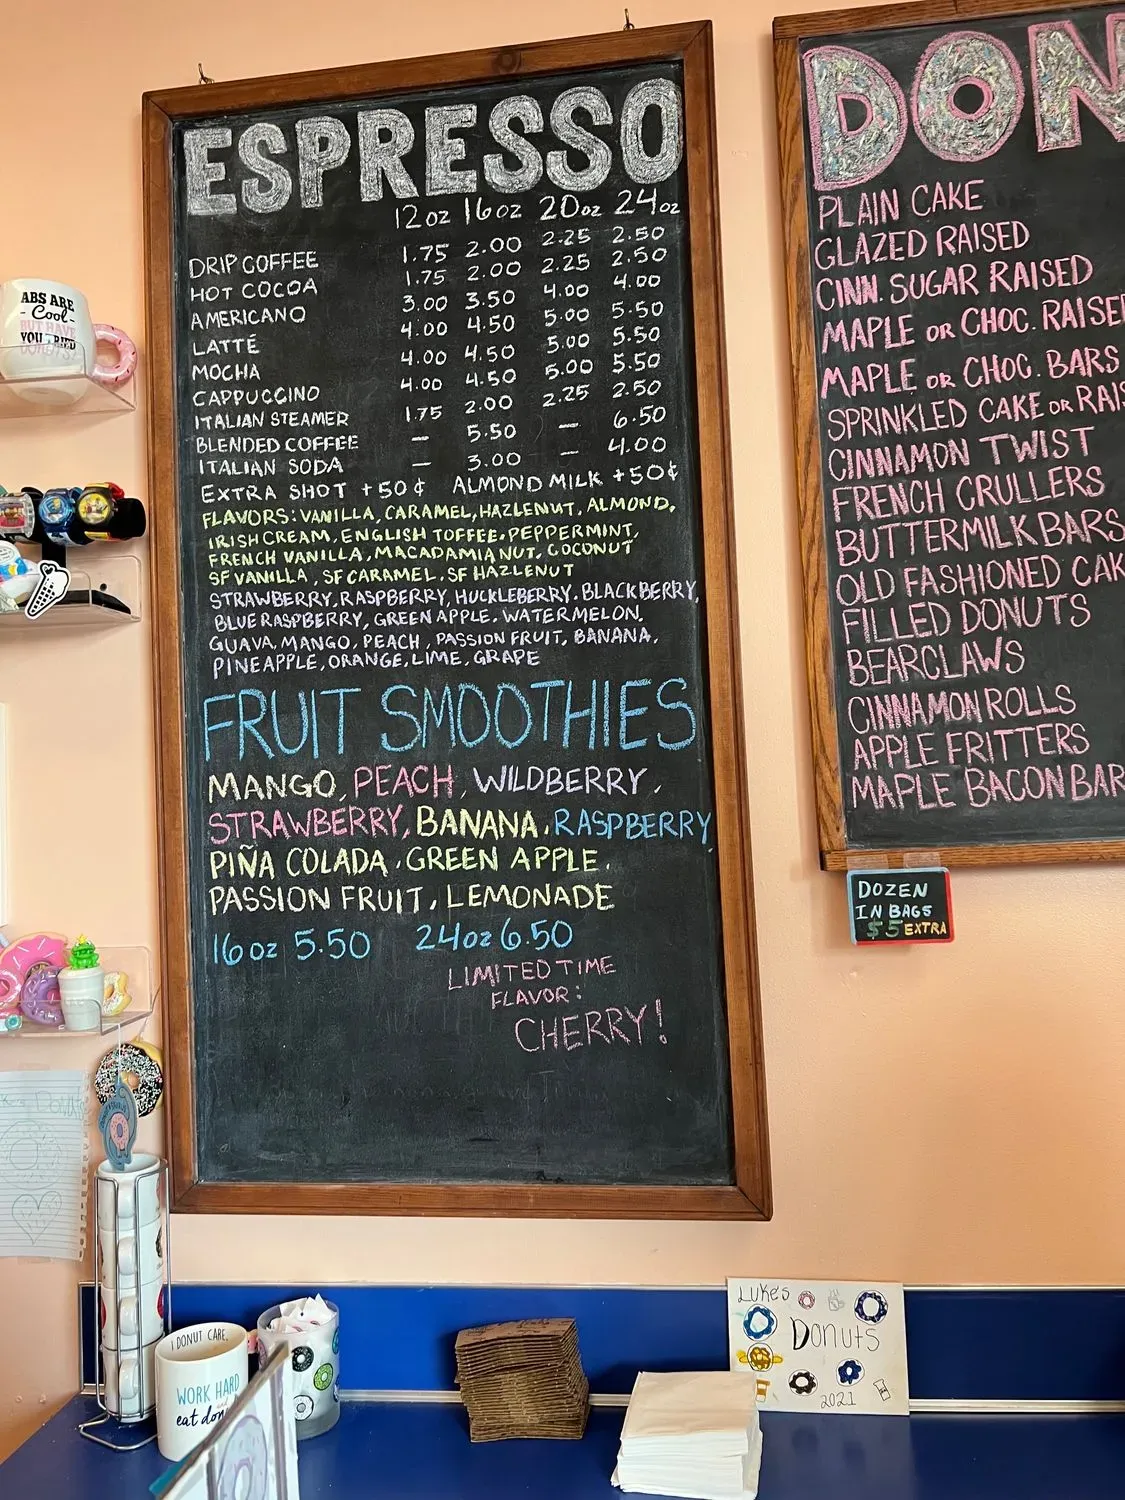 ESPRESSO
12oz 16oz 20oz 24oz
DRIP COFFEE 1.75 2.00 2.25 2.50
HOT COCOA 1.75 2.00 2.25 2.50
AMERICANO 3.00 3.50 4.00 4.00
LATTE 4.00 4.50 5.00 5.50
MOCHA 4.00 4.50 5.00 5.50
CAPPUCCINO 4.00 4.50 5.00 5.50
ITALIAN STEAMER 1.75 2.00 2.25 2.50
BLENDED COFFEE — 5.50 — 6.50
ITALIAN SODA — 3.00 — 4.00
EXTRA SHOT +50¢ ALMOND MILK +50¢
FLAVORS: VANILLA, CARAMEL, HAZLENUT, ALMOND,
IRISH CREAM, ENGLISH TOFFEE, PEPPERMINT,
FRENCH VANILLA, MACADAMIA NUT, COCONUT
SF VANILLA, SF CARAMEL, SF HAZLENUT
STRAWBERRY, RASPBERRY, HUCKLEBERRY, BLACKBERRY,
BLUE RASPBERRY, GREEN APPLE, WATERMELON,
GUAVA, MANGO, PEACH, PASSION FRUIT, BANANA,
PINEAPPLE, ORANGE, LIME, GRAPE
FRUIT SMOOTHIES
MANGO, PEACH, WILDBERRY,
STRAWBERRY, BANANA, RASPBERRY
PIÑA COLADA, GREEN APPLE,
PASSION FRUIT, LEMONADE
16oz 5.50 24oz 6.50
LIMITED TIME
FLAVOR:
CHERRY!
DON
PLAIN CAKE
GLAZED RAISED
CINN. SUGAR RAISED
MAPLE OR CHOC. RAISE
MAPLE OR CHOC. BARS
SPRINKLED CAKE OR RAI
CINNAMON TWIST
FRENCH CRULLERS
BUTTERMILK BARS
OLD FASHIONED CAK
FILLED DONUTS
BEARCLAWS
CINNAMON ROLLS
APPLE FRITTERS
MAPLE BACON BAR
DOZEN
IN BAGS
$5 EXTRA
ABS ARE
- Cool -
BUT HAVE
YOU
I DONUT CARE.
WORK HARD
eat
LUKE'S
DONUTS
2021